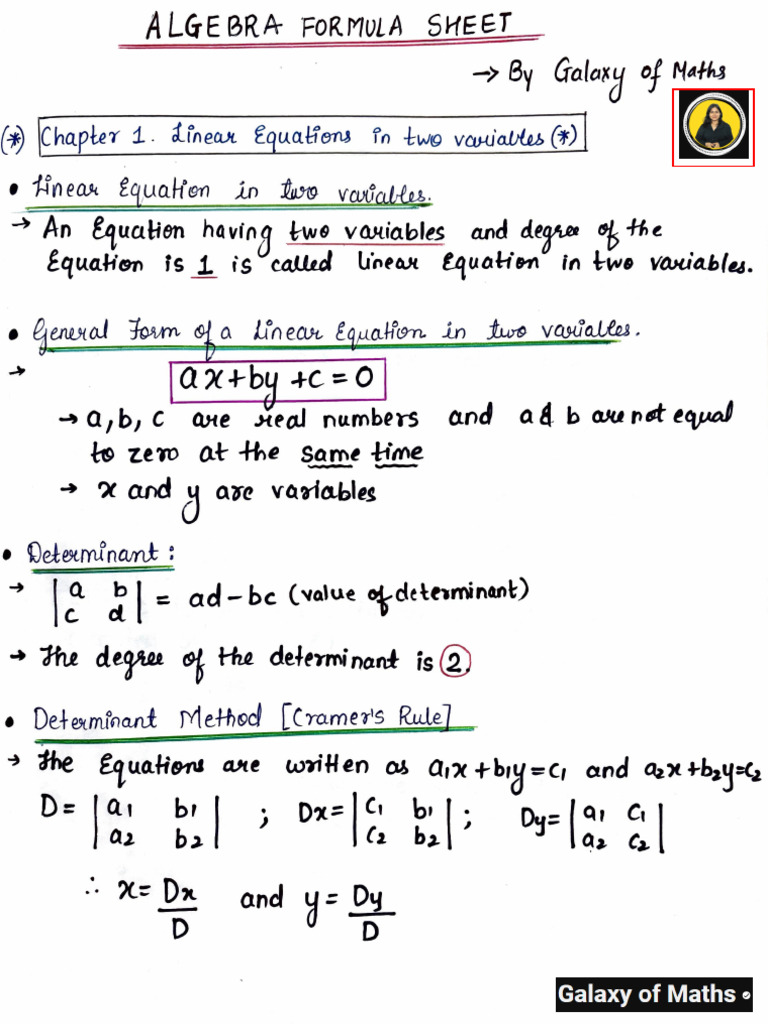 ALGEBRA FORMULA SHEET
→ By Galaxy of Maths
(*) Chapter 1. Linear Equations in two variables (*)
• Linear Equation in two variables.
→ An Equation having two variables and degree of the
Equation is 1 is called linear Equation in two variables.
• General Form of a Linear Equation in two variables.
→ ax+by+c=0
→ a, b, c are real numbers and a & b are not equal
to zero at the same time
→ x and y are variables
• Determinant:
→ |a b| = ad-bc (value of determinant)
|c d|
→ The degree of the determinant is 2.
• Determinant Method [Cramer's Rule]
→ The Equations are written as a₁x+b₁y=c₁ and a₂x+b₂y=c₂
D= |a₁ b₁| ; Dx= |c₁ b₁| ; Dy= |a₁ c₁|
|a₂ b₂| |c₂ b₂| |a₂ c₂|
∴ x= Dx/D and y= Dy/D
Galaxy of Maths